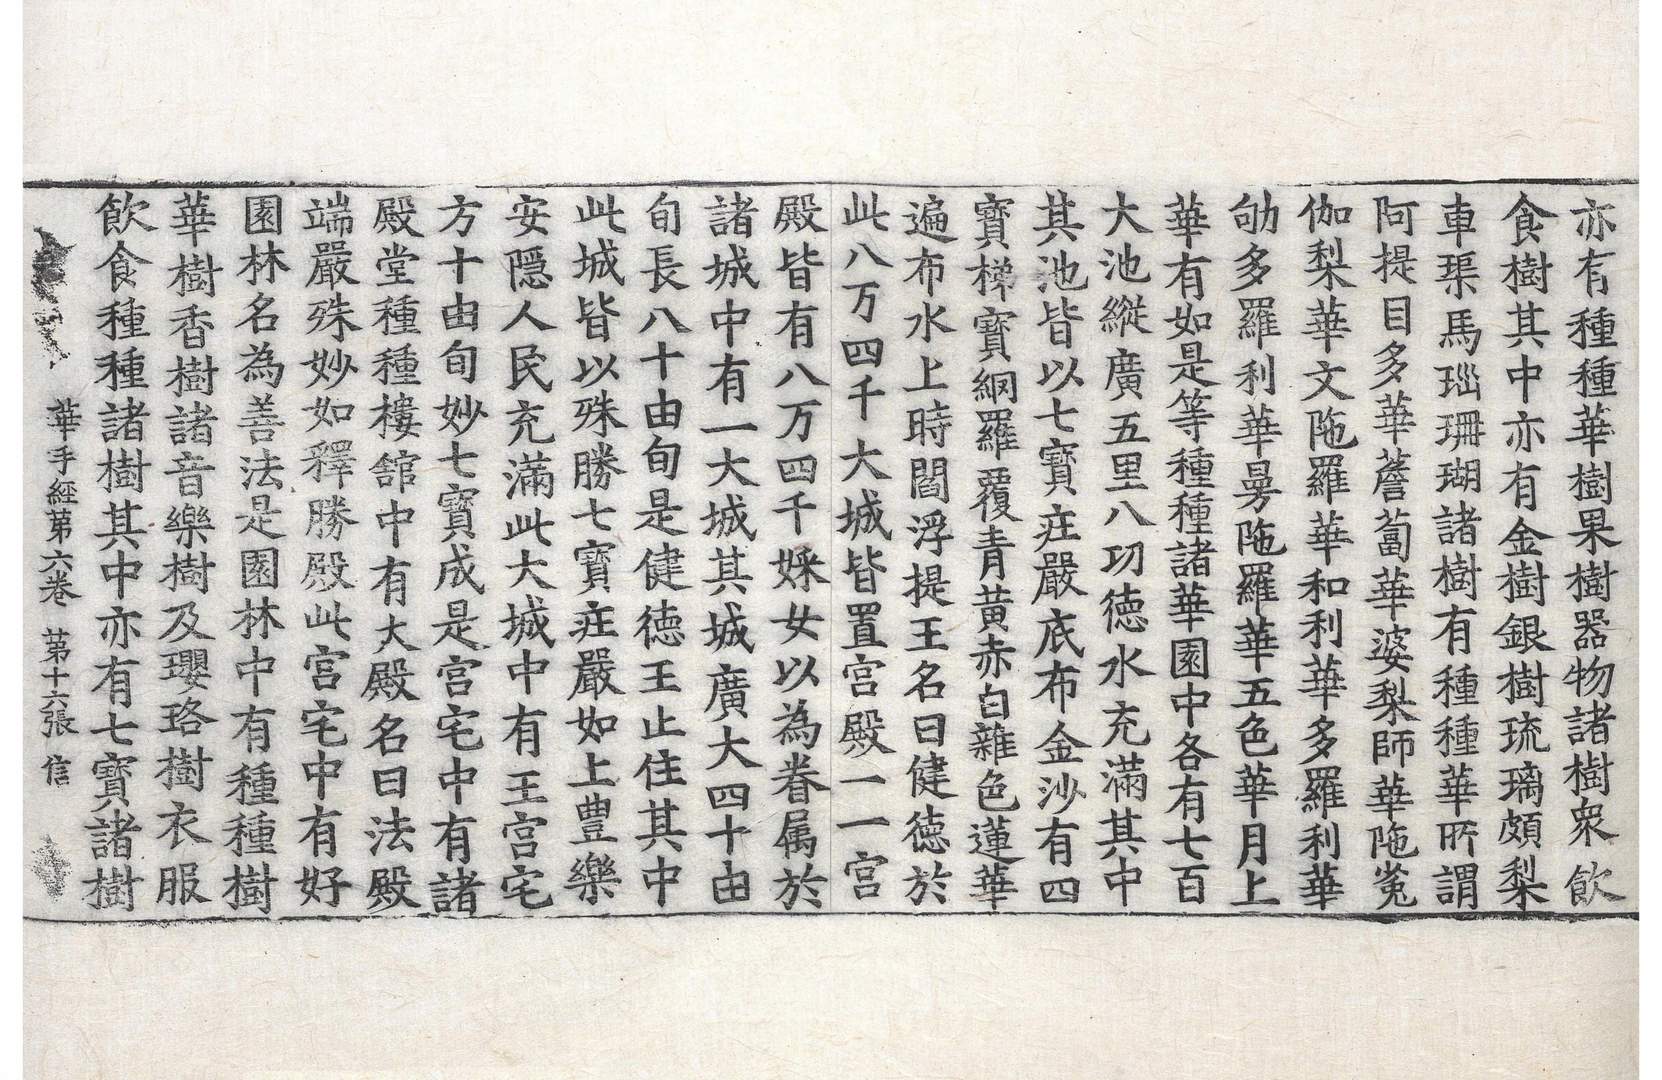 亦有種種華樹果樹器物諸樹衆飲
食樹其中亦有金樹銀樹琉璃頗梨
車𤦲馬瑙珊瑚諸樹有種種華所謂
阿提目多華薝蔔華婆梨師華陁㝹
伽梨華文陁羅華和利華多羅利華
㔙多羅利華曼陁羅華五色華月上
華有如是等種種諸華園中各有七百
大池縱廣五里八㓛德水充滿其中
其池皆以七寶庄嚴底布金沙有四
寶梯寶網羅覆青黃赤白雜色蓮華
遍布水上時閻浮提王名曰健德於
此八万四千大城皆置宮殿一一宮
殿皆有八万四千婇女以為眷属於
諸城中有一大城其城廣大四十由
旬長八十由旬是健德王止住其中
此城皆以殊勝七寶庄嚴如上豊樂
安隱人民充滿此大城中有王宮宅
方十由旬妙七寶成是宮宅中有諸
殿堂種種樓舘中有大殿名曰法殿
端嚴殊妙如釋勝殿此宮宅中有好
園林名為善法是園林中有種種樹
華樹香樹諸音樂樹及瓔珞樹衣服
飲食種種諸樹其中亦有七寶諸樹
華手經第六卷 第十六張 信